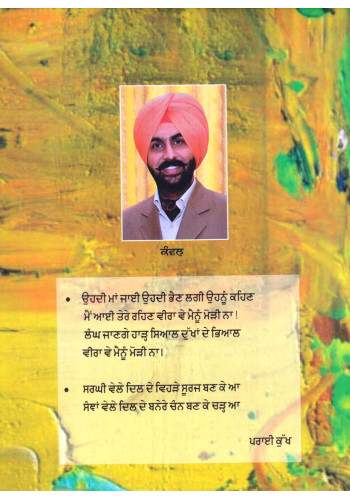 ਕੰਵਲ
ਉਹਦੀ ਮਾਂ ਜਾਈ ਉਹਦੀ ਭੈਣ ਲਗੀ ਉਹਨੂੰ ਕਹਿਣ
ਮੈਂ ਆਈ ਤੇਰੇ ਰਹਿਣ ਵੀਰਾ ਵੇ ਮੈਨੂੰ ਮੋੜੀ ਨਾ !
ਲੰਘ ਜਾਣਗੇ ਹਾੜ੍ਹ ਸਿਆਲ ਦੁੱਖਾਂ ਦੇ ਭਿਆਲ
ਵੀਰਾ ਵੇ ਮੈਨੂੰ ਮੋੜੀ ਨਾ।
ਸਰਘੀ ਵੇਲੇ ਦਿਲ ਦੇ ਵਿਹੜੇ ਸੂਰਜ ਬਣ ਕੇ ਆ
ਸੰਞਾਂ ਵੇਲੇ ਦਿਲ ਦੇ ਬਨੇਰੇ ਚੰਨ ਬਣ ਕੇ ਚੜ੍ਹ ਆ
ਪਰਾਈ ਕੁੱਖ